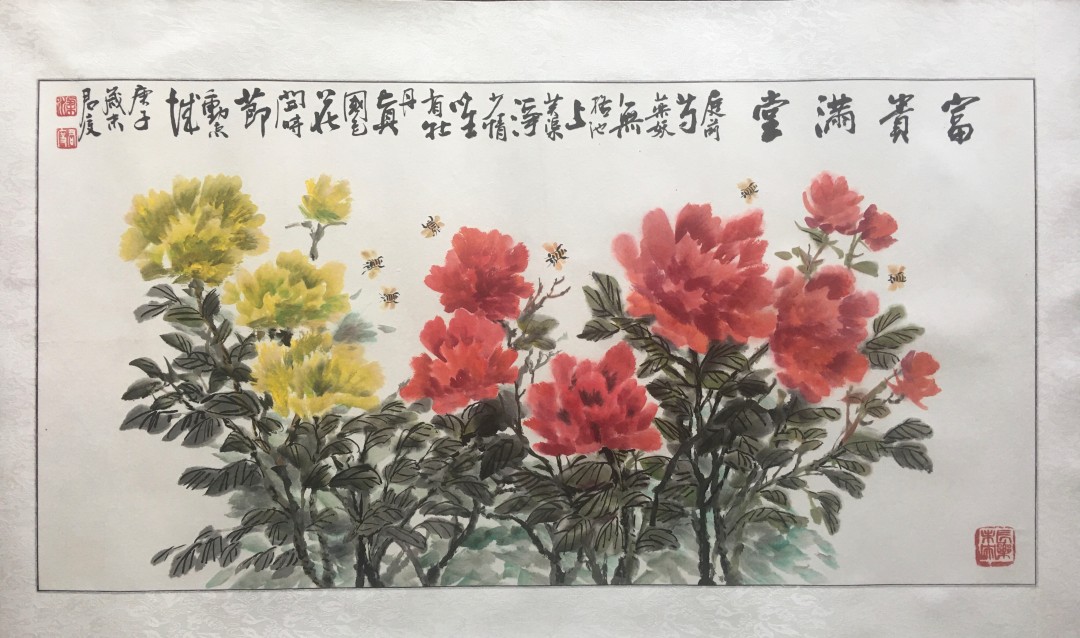 富貴滿堂
庭前芍藥妖無格池上芙渠淨少情唯有牡丹真國色花開時節動京城
庚子歲末君度